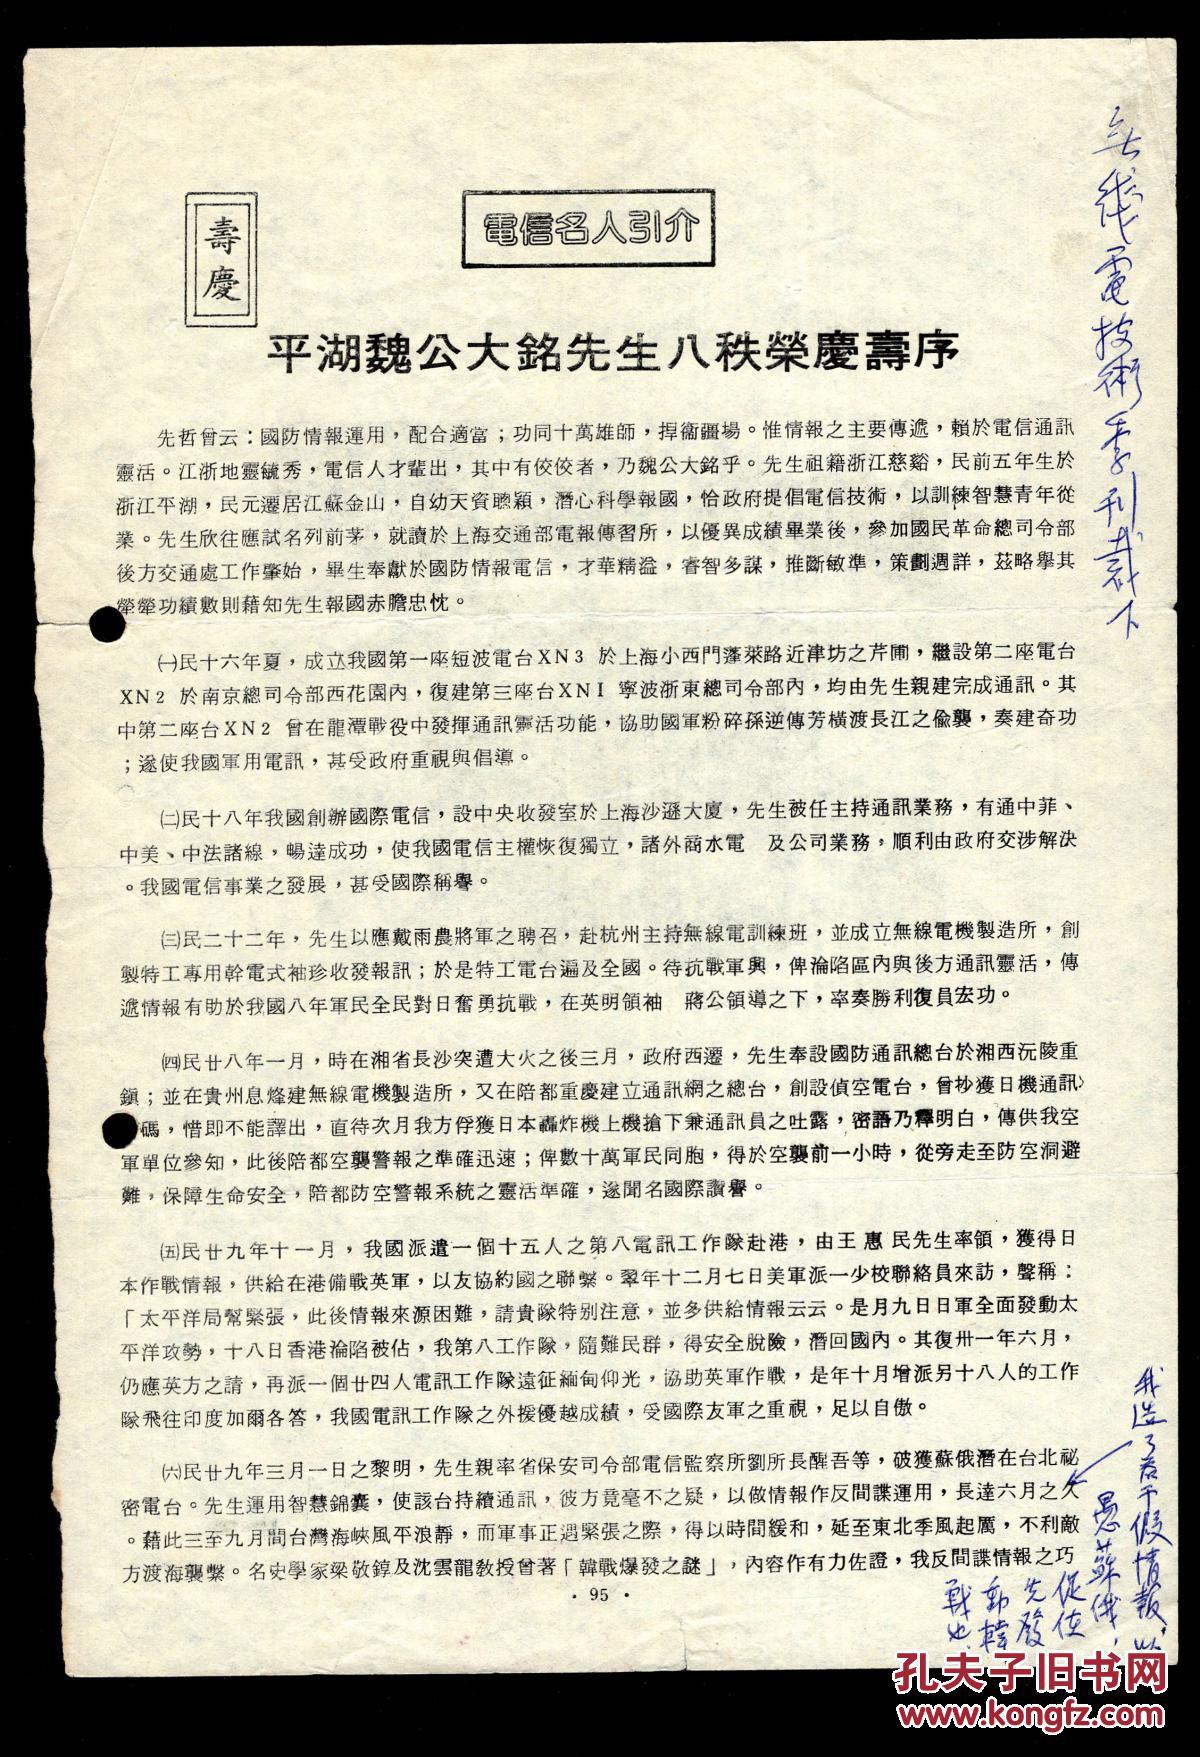 壽慶
電信名人引介
平湖魏公大銘先生八秩榮慶壽序
先哲曾云：國防情報運用，配合適當；功同十萬雄師，捍衞疆場。惟情報之主要傳遞，賴於電信通訊
靈活。江浙地靈毓秀，電信人才輩出，其中有佼佼者，乃魏公大銘乎。先生祖籍浙江慈谿，民前五年生於
浙江平湖，民元遷居江蘇金山，自幼天資聰穎，潛心科學報國，恰政府提倡電信技術，以訓練智慧青年從
業。先生欣往應試名列前茅，就讀於上海交通部電報傳習所，以優異成績畢業後，參加國民革命總司令部
後方交通處工作肇始，畢生奉獻於國防情報電信，才華精溢，睿智多謀，推斷敏準，策劃週詳，茲略擧其
犖犖功績數則藉知先生報國赤膽忠忱。
㈠民十六年夏，成立我國第一座短波電台XN3 於上海小西門蓬萊路近津坊之芹圃，繼設第二座電台
XN2 於南京總司令部西花園內，復建第三座台XN1 寧波浙東總司令部內，均由先生親建完成通訊。其
中第二座台XN2 曾在龍潭戰役中發揮通訊靈活功能，協助國軍粉碎孫逆傳芳橫渡長江之偷襲，奏建奇功
；遂使我國軍用電訊，甚受政府重視與倡導。
㈡民十八年我國創辦國際電信，設中央收發室於上海沙遜大廈，先生被任主持通訊業務，有通中菲、
中美、中法諸線，暢達成功，使我國電信主權恢復獨立，諸外商水電　及公司業務，順利由政府交涉解決
。我國電信事業之發展，甚受國際稱譽。
㈢民二十二年，先生以應戴雨農將軍之聘召，赴杭州主持無線電訓練班，並成立無線電機製造所，創
製特工專用幹電式袖珍收發報訊；於是特工電台遍及全國。待抗戰軍興，俾淪陷區內與後方通訊靈活，傳
遞情報有助於我國八年軍民全民對日奮勇抗戰，在英明領袖　蔣公領導之下，率奏勝利復員宏功。
㈣民廿八年一月，時在湘省長沙突遭大火之後三月，政府西遷，先生奉設國防通訊總台於湘西沅陵重
鎭；並在貴州息烽建無線電機製造所，又在陪都重慶建立通訊網之總台，創設偵空電台，曾抄獲日機通訊
碼，惜即不能譯出，直待次月我方俘獲日本轟炸機上機搶下兼通訊員之吐露，密語乃釋明白，傳供我空
軍單位參知，此後陪都空襲警報之準確迅速；俾數十萬軍民同胞，得於空襲前一小時，從旁走至防空洞避
難，保障生命安全，陪都防空警報系統之靈活準確，遂聞名國際讚譽。
㈤民廿九年十一月，我國派遣一個十五人之第八電訊工作隊赴港，由王 惠 民先生率領，獲得日
本作戰情報，供給在港備戰英軍，以友協約國之聯繫。翌年十二月七日美軍派一少校聯絡員來訪，聲稱：
「太平洋局幫緊張，此後情報來源困難，請貴隊特别注意，並多供給情報云云。是月九日日軍全面發動太
平洋攻勢，十八日香港淪陷被佔，我第八工作隊，隨難民群，得安全脫險，潛回國內。其復卅一年六月，
仍應英方之請，再派一個廿四人電訊工作隊遠征緬甸仰光，協助英軍作戰，是年十月增派另十八人的工作
隊飛往印度加爾各答，我國電訊工作隊之外援優越成績，受國際友軍之重視，足以自傲。
㈥民廿九年三月一日之黎明，先生親率省保安司令部電信監察所劉所長醒吾等，破獲蘇俄潛在台北祕
密電台。先生運用智慧錦囊，使該台持續通訊，彼方竟毫不之疑，以做情報作反間諜運用，長達六月之久
。藉此三至九月間台灣海峽風平浪靜，而軍事正遇緊張之際，得以時間緩和，延至東北季風起厲，不利敵
方渡海襲擊。名史學家梁敬錞及沈雲龍敎授曾著「韓戰爆發之謎」，內容作有力佐證，我反間諜情報之巧
· 95 ·
無線電技術季刊裁下
我造了若干假情報，以
愚蘇俄，
促使
先發
動韓
戰也、
孔夫子旧书网